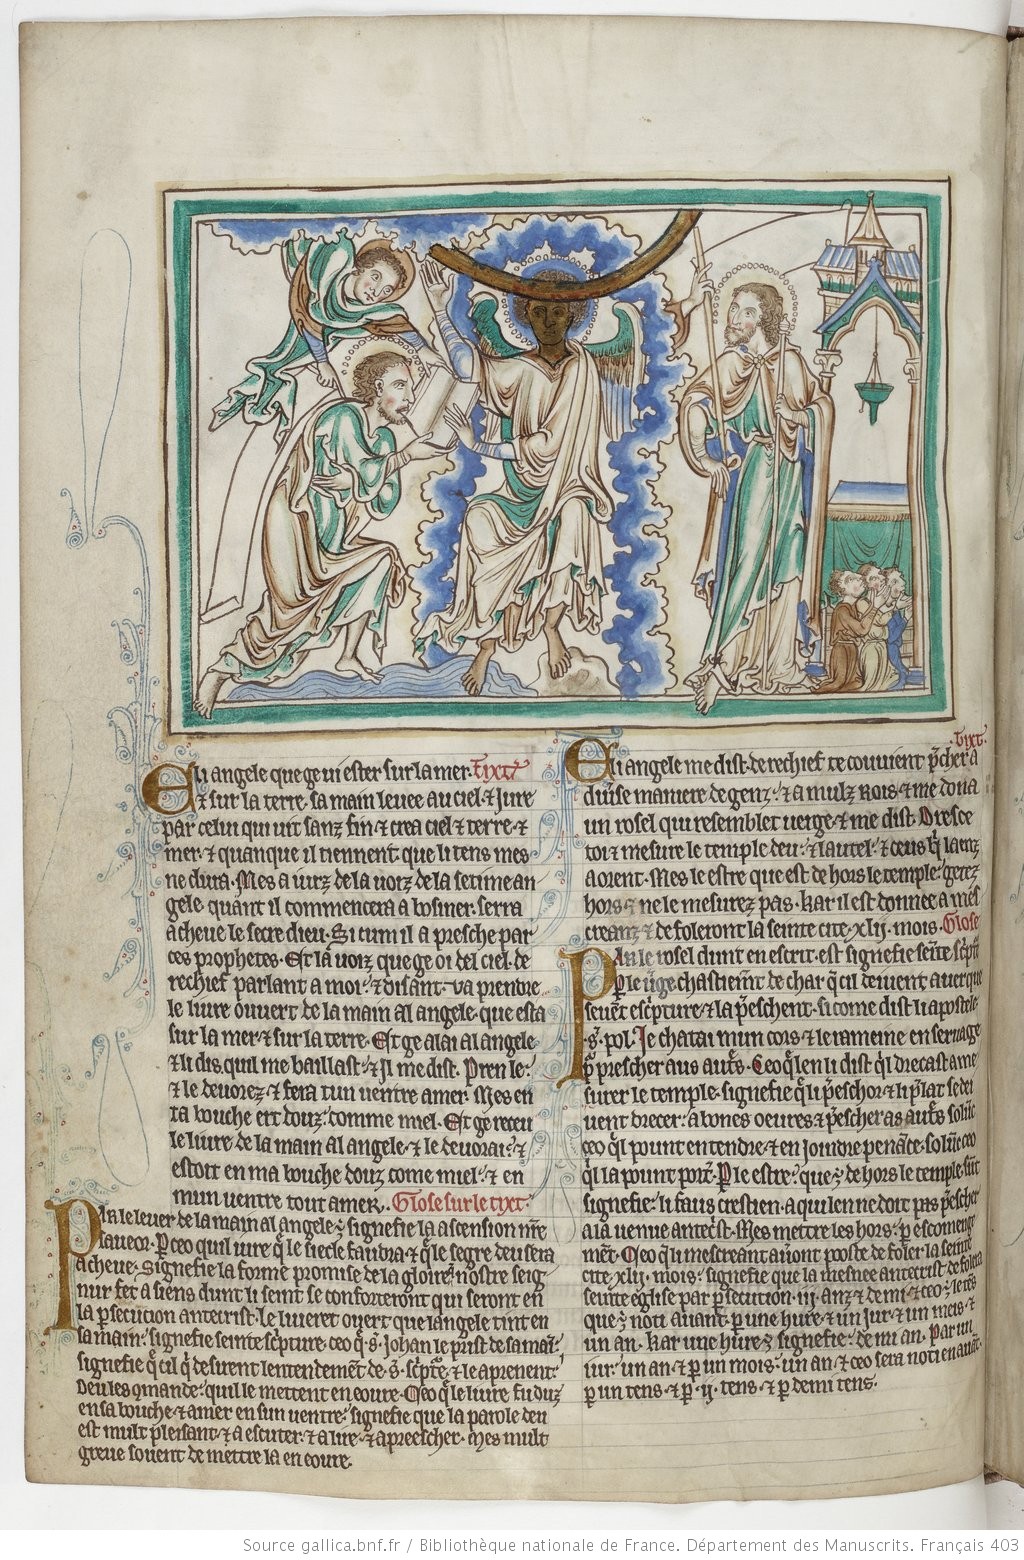 Eli angele que ge vi ester sur la mer. Tixte
⁊ sur la terre. sa main levee au ciel. ⁊ jure
par celui qui vit sanz fin. ⁊ crea ciel ⁊ terre. ⁊
mer. ⁊ quanque il tiennent que li tens mes
ne dura. Mes a de la voiz de la setime an
gele. quant il commencera a bosiner. serra
acheve le secre dieu. Si cum il a presche par
ces prophetes. Et la voiz que ge oi del ciel. de
rechief parlant a moi. ⁊ disant. va prendre
le livre overt de la main al angele. que esta
sur la mer. ⁊ sur la terre. Et ge alai al angele.
⁊ li dis. quil me baillast. ⁊ Il me dist. Pren le.
⁊ le devorez. ⁊ fera tun ventre amer. Mes en
ta bouche ert douz. comme miel. Et ge receu
le livre. de la main al angele. ⁊ le devorai. ⁊
estoit en ma bouche douz come miel. ⁊ en
mun ventre tout amer. Glose sur le tixt.
Par le lever de la main al angele signefie la ascension
Par ceo quil jure que le siecle faudra. ⁊ que le segre deu sera
acheve. Signefie la forme promise de la gloire. nostre seig
nur fet a siens. dunt li seint se conforteront qui seront en
la persecucion antecrist. le livret overt que langele tint en
sa main. signefie seinte scripture. ceo que s. Johan le prist de sa main.
signefie que cil qui desirent lentendement de ⁊ le aprenent.
Deu les cmande. quil le mettent en ovre. Ceo que le livre fu duz
en sa bouche. ⁊ amer en sun ventre. signefie que la parole deu
est mult pleisant. ⁊ a escuter. ⁊ a lire. ⁊ a preescher. Mes mult
greve sovent de mettre la en ovre.
tixt.
Eli angele me dist. de rechief te couvient precher a
divise maniere de genz. ⁊ a mulz Rois. ⁊ me dona
un rosel qui resemblet verge. ⁊ me dist. Dresce
toi ⁊ mesure le temple deu. ⁊ lautel. ⁊ ceus qi laenz
aorent. Mes le estre que est de hors le temple. getez
hors. ⁊ ne le mesurez pas. Kar il est donne a mes
creanz. ⁊ defoleront la seinte cite. xlij. mois. Glose
Par le rosel dunt en escrit. est signefie seinte
Par le chastient de char. devient averque
⁊ la preschent. si come dist li apostele
s. pol. Je chatai mun cors ⁊ le rameine en servage
prescher aus autres. Ceo que len li dist
surer le temple. signefie
vent drecer. a bones oevres. ⁊ prescher as autres
ceo quil pount entendre. ⁊ enjoindre penance
la pount porter. Par le estre. que est de hors le temple.
signefie. li faus crestien. a qui len ne doit pas prescher
a la venue antecrist. Mes mettre les hors. par
ment. Ceo que li mescreant auront poste de foler la seinte
cite. xlij. mois. signefie que la mesnee antecrist defolera
seinte eglise par persecution. iij. anz ⁊ demi. ⁊ ceo
que est noti avant. par une hure. ⁊ un jur. ⁊ un meis. ⁊
un an. Kar une hure signefie. demi an. Par un
jur. un an. ⁊ par un mois. un an. ⁊ ceo sera noti en avant.
par un tens. ⁊ par ij. tens. ⁊ par demi tens.
Source gallica.bnf.fr / Bibliothèque nationale de France. Département des Manuscrits. Français 403